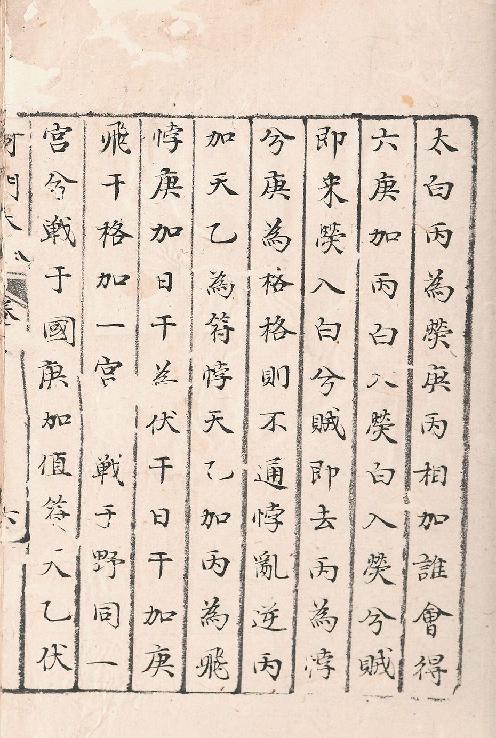 太白丙為熒庚丙相加誰會得
六庚加丙白入熒白入熒兮賊
即来熒入白兮賊即去丙為悖
兮庚為格格則不通悖亂逆丙
加天乙為符悖天乙加丙為飛
悖庚加日干为伏干日干加庚
飛干格加一宮 戦于野同一
宮兮戦于國庚加值符天乙伏